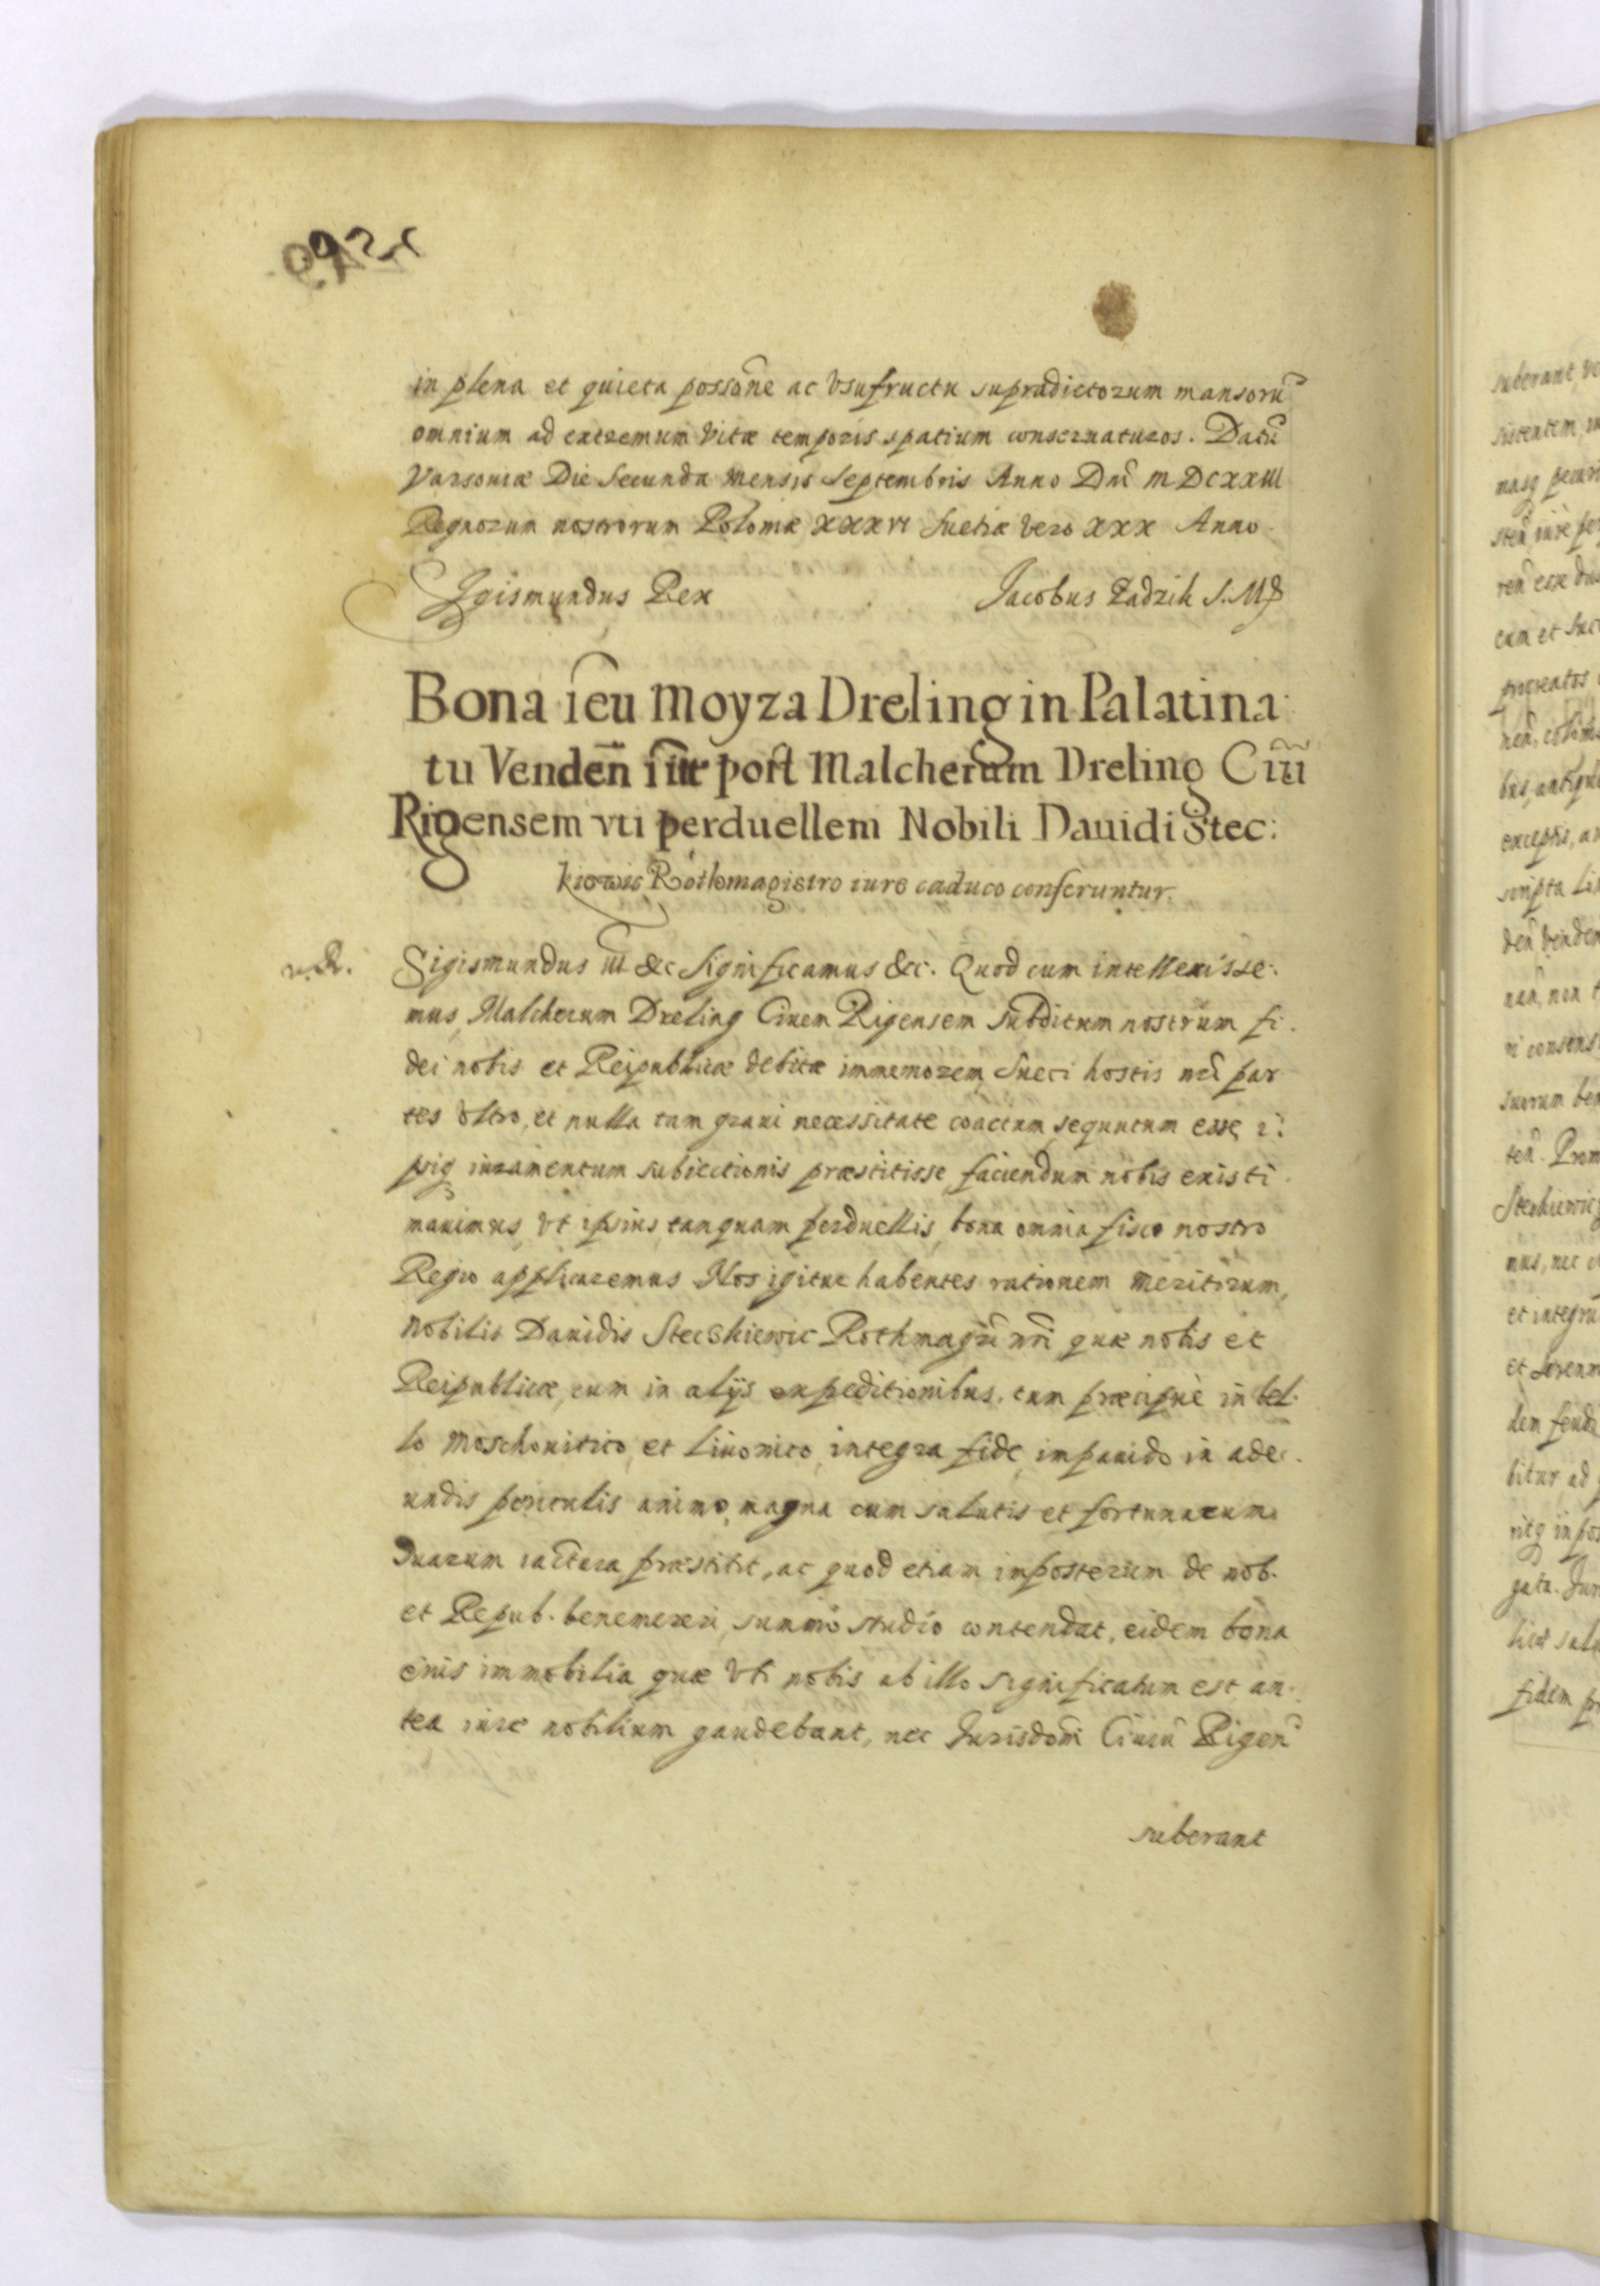 in plena et quieta possõne ac Vsufructu supradictorum mansorũ
omnium ad extremum Vitæ temporis spatium conseruaturos. Datũ
Varsouiæ Die Secunda Mensis Septembris Anno Dnĩ M DCXXIII
Regnorum nostrorum Poloniæ XXXVI Suetiæ Vero XXX Anno
Sigismundus Rex Jacobus Zadzik S. M
Bona seu Moyza Dreling in Palatina
tu Venden̄ sitæ post Malcherum Dreling Ciũ
Rigensem vti perduellem Nobili Dauidi Stec:
kiewic Rothomagistro iure caduco conferuntur.
Sigismundus III &c Significamus &c. Quod cum intellexisse
mus Malcherum Dreling Ciuem Rigensem subditum nostrum fi
dei nobis et Reipublicæ debitæ immemorem Sueci hostis nrĩ par
tes Vltro, et nulla tam graui necessitate coactum sequutum esse, i
psiq iuramentum subiectionis præstitisse, faciendum nobis existi
mauimus, Vt ipsius tanquam perduellis, bona omnia fisco nostro
Regio applicaremus Nos igitur habentes rationem Meritorum,
Nobilis Dauidis Steckiewic Rothmagrĩ nrĩ quæ nobis et
Reipublicæ, cum in alijs expeditionibus, tum præcipuè in bel
lo Moschouitico, et Liuonico, integra fide, impauido in ade
undis periculis animo, magna cum salutis et fortunarum
suarum iactura præstitit, ac quod etiam imposterum de nob.
et Repub. benemereri, summo studio contendat, eidem bona
eius immobilia quæ Vti nobis ab illo significatum est an
tea iure nobilium gaudebant, nec Jurisdoñi Ciuiũ Rigeñ
suberant